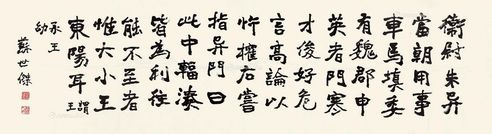 衞尉朱异
當朝用事
車馬填委
有魏郡申
英者門寒
才俊好危
言高論以
忤權右嘗
指异門曰
此中輻湊
皆為利往
能不至者
惟大小王
東陽耳謂王
承王幼
蘇世傑